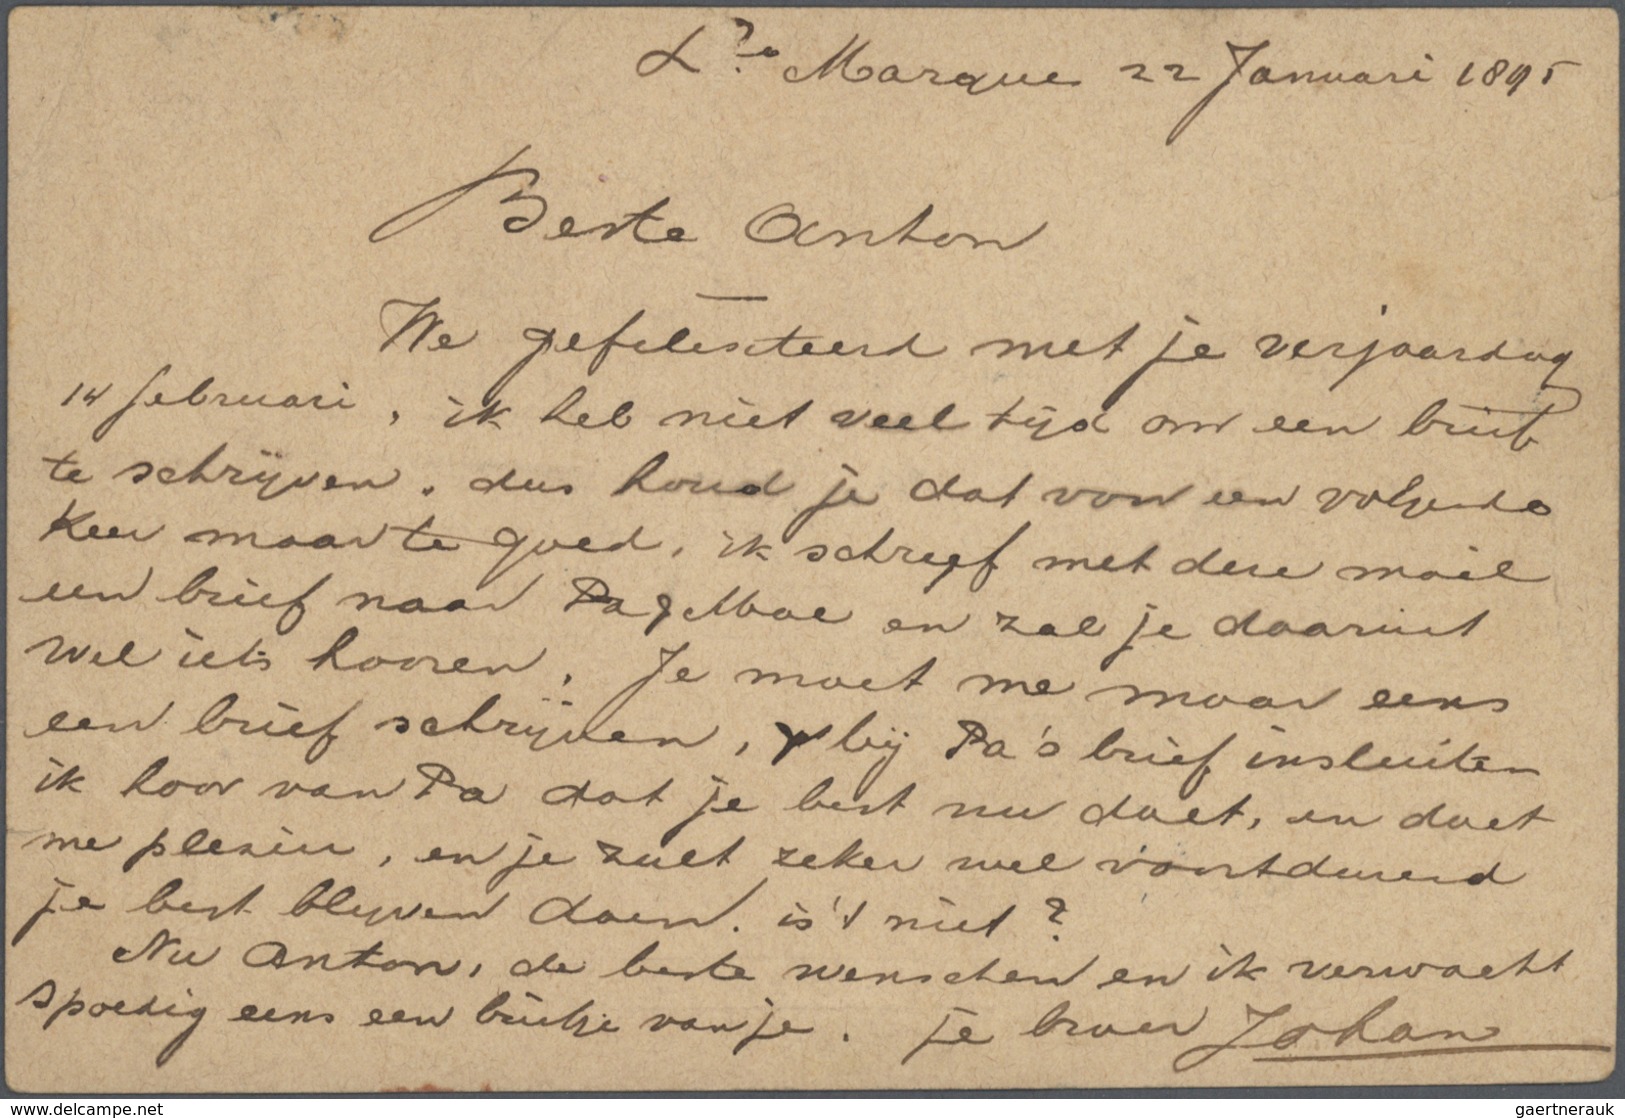 Lzo Marques 22 Januari 1895
Beste Anton
Wel gefeliciteerd met je verjaardag
14 februari, ik heb niet veel tijd om een brief
te schrijven. dus houd je dat van een volgende
keer maar te goed, ik schreef met deze mail
een brief naar Pa & Moe en zal je daaruit
wel iets hooren. Je moet me maar eens
een brief schrijven, bij Pa's brief insluiten
ik hoor van Pa dat je best nu doet, en doet
me plezier, en je zult zeker wel voortdurend
je best blijven doen. is 't niet?
Nu Anton, de beste wenschen en ik verwacht
spoedig eens een briefje van je. je broer Johan
www.delcampe.net
gaertnerauk